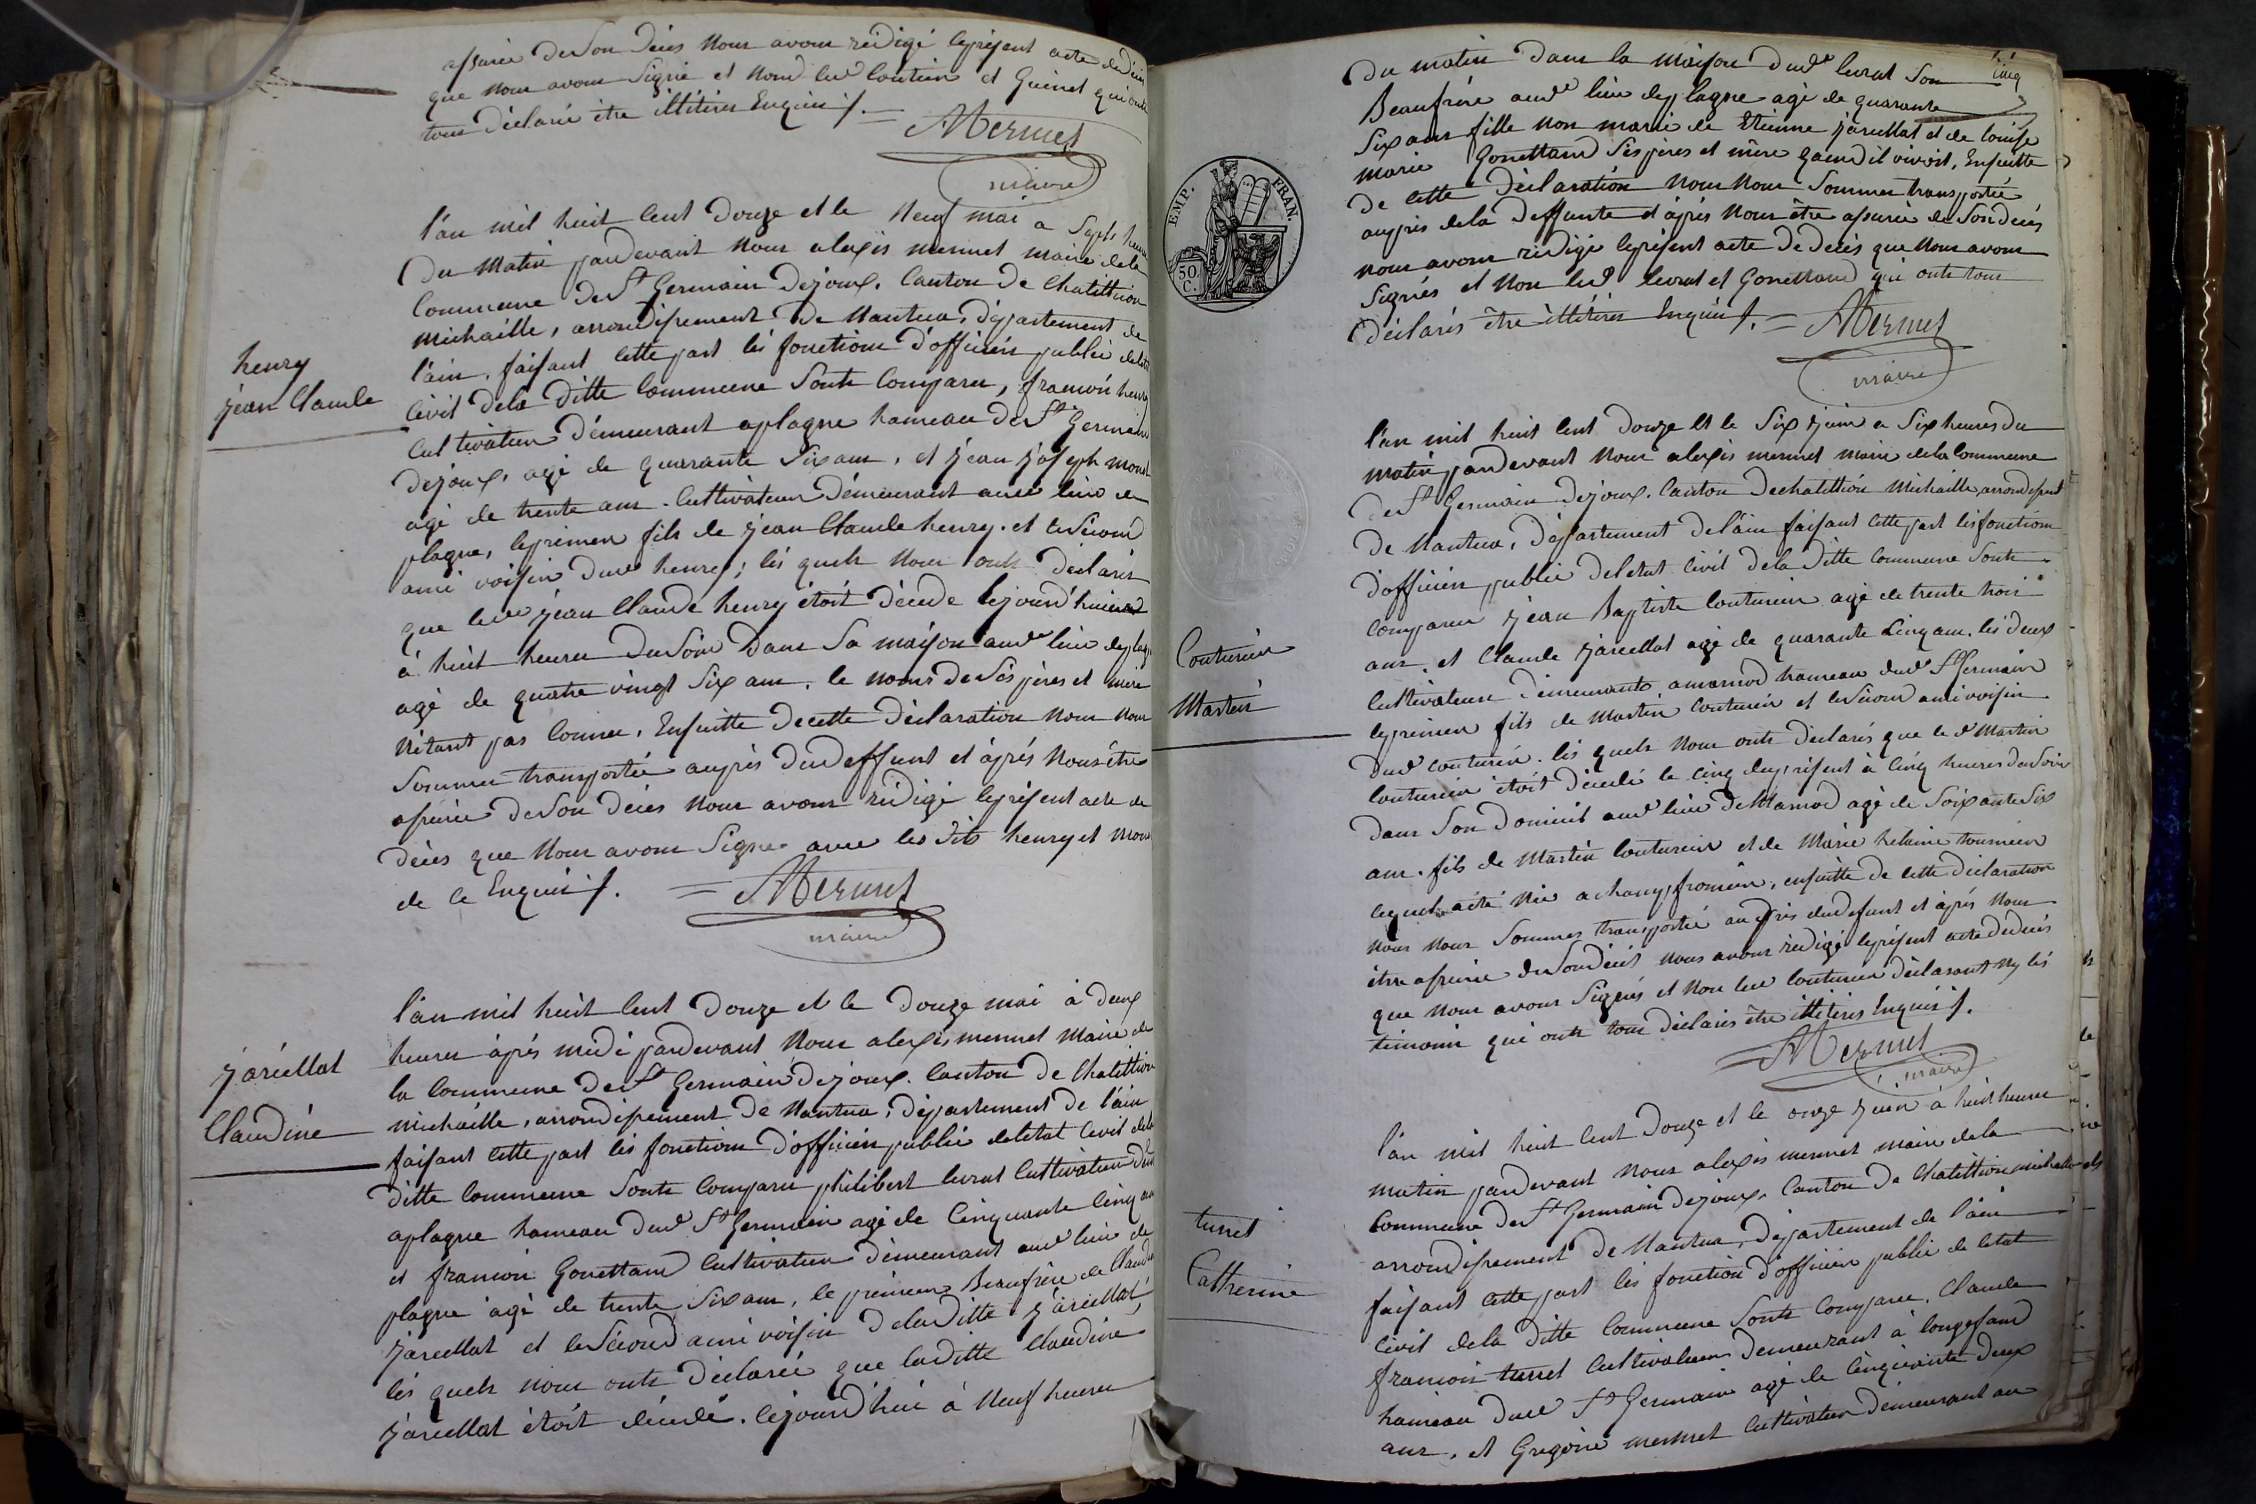 assurée de son décès nous avons rédigé le présent acte de décès
que nous avons signé et nond les Couturier et Guinet qui ont
tous déclaré être illitires Enquis /. =
AMermet
maire
l'an mil huit cent douze et le neuf mai a sept heures
du matin pardevant nous alexis mermet maire de la
Commune de St Germain dejoux, canton de chatillion
michaille, arrondissement de Nantua, département de
l'ain, faisant cette part les fonctions d'officier public de letat
henry
jean Claude
civil de la ditte Commune Sont Comparu, francois henry
Cultivateur démeurant a plagne hameau de St Germain
dejoux, agé de quarante six ans, et jean joseph monet
agé de trente ans. Cultivateur démeurant aud lieu de
plagne, le premier fils de jean Claude henry. et le Second
ami voisin dud henry; lès quels nous ont déclarés
que led jean Claude henry étoit décéde lejourd'hui
à huit heures du soir dans sa maison aud lieu de plagne
agé de quatre vingt six ans. le noms de sès pères et mère
nétant pas connu, Ensuitte de cette déclaration nous nous
sommes transportée auprès dud deffunt et après nous être
assurée de son décès nous avons rédigé le présent acte de
décès que nous avons Signe avec les dits henry et monet
de ce Enquis /. = AMermet
maire
l'an mil huit cent douze et le douze mai à deux
heures après midi pardevant nous alexis mermet maire de
jarcellat
Claudine
la commune de St Germain dejoux. Canton de Chatillion
michaille, arrondissement de Nantua, département de l'ain
faisant cette part lès fonctions d'officier public de letat civil de la
ditte commune Sont Comparu philibert livrat Cultivateur
a plagne hameau dud St Germain agé de Cinquante cinq ans
et francois Gonettand Cultivateur démeurant aud lieu de
plagne agé de trente six ans, le premier Beaufrère de Claudine
jarcellat et le Second ami voisin de la ditte jarcellat,
lès quels nous ont déclarée que la ditte Claudine
jarcellat étoit décedé. lejourd'hui à neuf heures
cinq
du matin dans la maison dud livrat son
Beaufrère aud lieu de plagne agé de quarante
six ans fille non marié de Etienne jarcellat et de louise
marie Gonettand Sès peres et mère quand il vivoit, Ensuitte
de cette déclaration nous nous sommes transportée
auprès de la deffunte et après nous être assurée de son decès
nous avons rédigé le présent acte de decès que nous avons
Signés et non led livrat et Gonettand qui ont tous
déclarés être illitires Enquis /. = AMermet
maire
EMP. FRAN.
50 C.
l'an mil huit cent douze et le Six juin a six heures du
matin pardevant nous alexis mermet maire de la Commune
de St Germain dejoux. Canton de chatillion michaille arrondissement
de Nantua, département de l'ain faisant cette part lès fonctions
d'officier public de letat civil de la ditte commune Sont
comparu jean Baptiste Couturier agé de trente trois
ans, et Claude jarcellat agé de quarante cinq ans. lès deux
Couturier
Martin
cultivateur démeurants a marnod hameau dud St Germain
le premier fils de Martin Couturier et le Second ami voisin
dud couturier. lès quels nous ont déclarés que led Martin
Couturier étoit décedé le cinq du présent à cinq heures du soir
dans son domicil aud lieu de Marnod agé de soixante six
ans. fils de Martin Couturier et de Marie helaine tournier
lequel a été née a ensuitte de cette déclaration
nous nous sommes transportée auprès dud defunt et après nous
être assurée de son décès nous avons rédigé le présent acte de decès
que nous avons Signés et non led Couturier déclarant ny lès
témoins qui ont tous déclarés être illitirés Enquis /.
= AMermet
maire
l'an mil huit cent douze et le onze juin à huit heures
matin pardevant nous alexis mermet maire de la
Commune de St Germain dejoux. Canton de Chatillion michaille
turret
Catherine
arrondissement de Nantua, département de l'ain
faisant cette part lès fonction d'officier public de letat
civil de la ditte Commune Sont Comparu, Claude
francois turret Cultivateur demeurant à longefand
hameau dud St Germain agé de cinquante deux
ans, et Gregoire mermet Cultivateur démeurant au